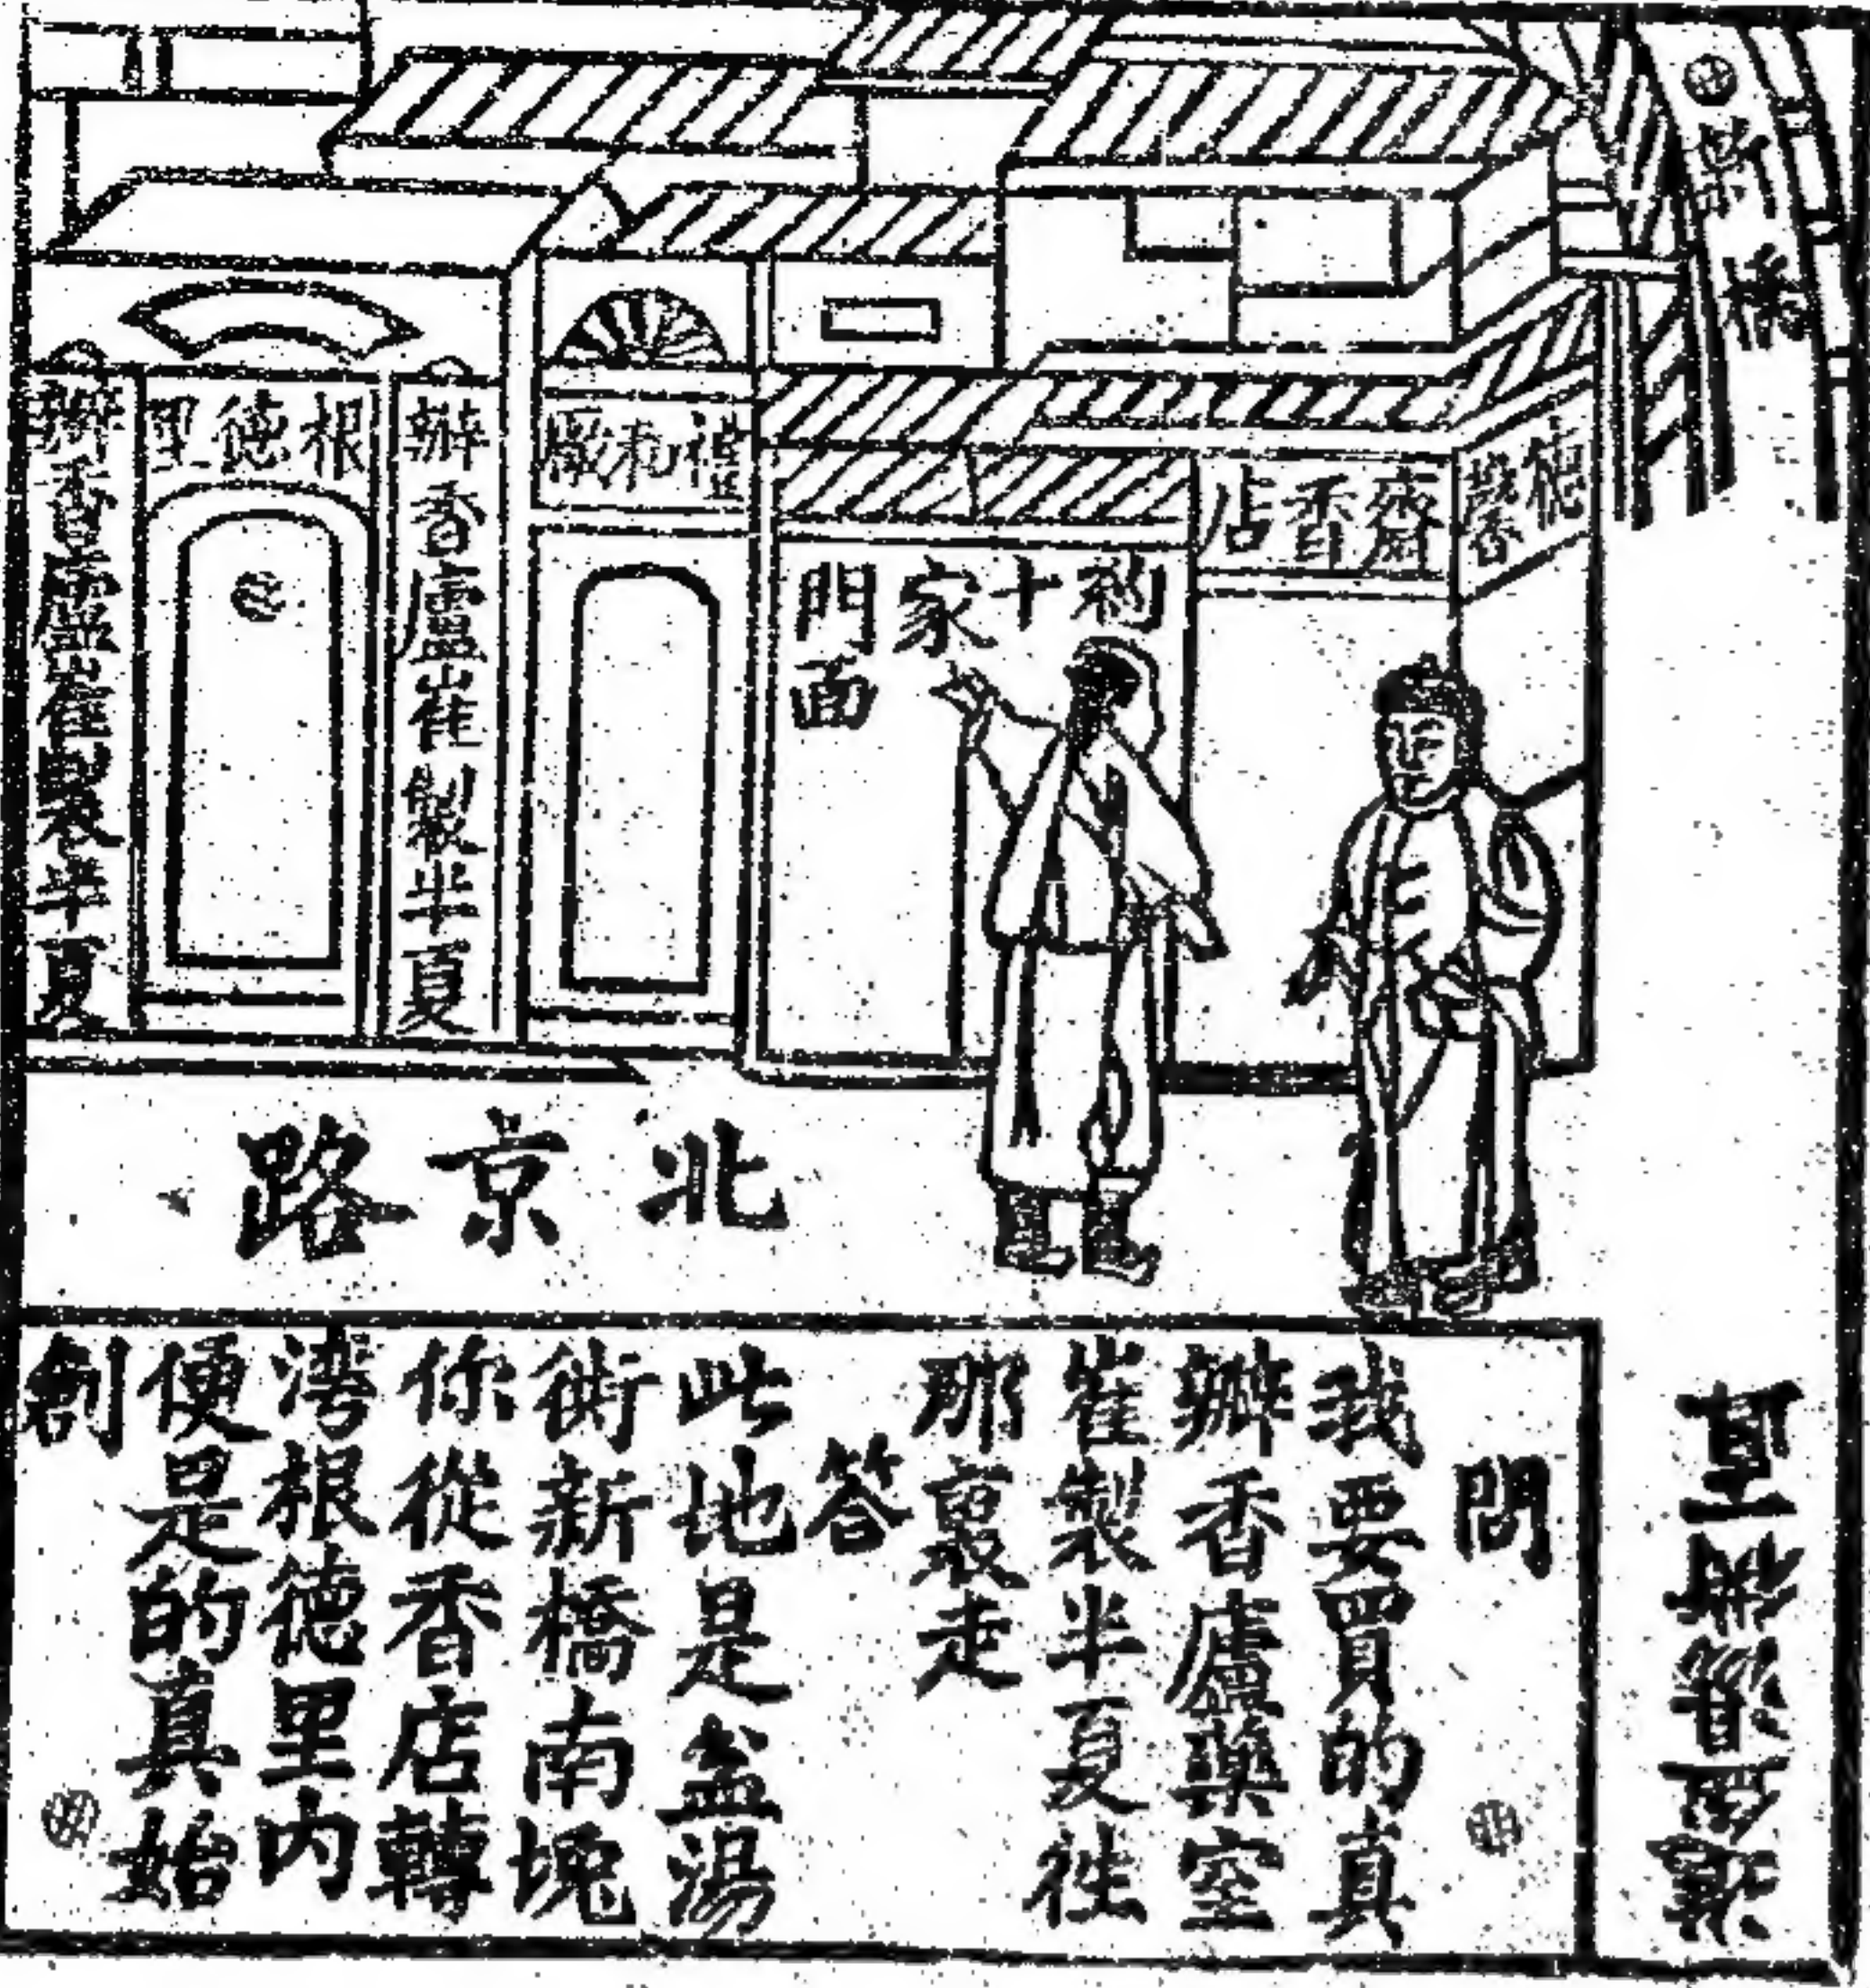 新橋
德馨
齋香店
約十家
門面
禮和廠
瓣香廬崔製半夏
根德里
瓣香廬崔製半夏
北京路
問
我要買的真
瓣香廬藥室
崔製半夏徃
那裏走
答
此地是盆湯
衖新橋南堍
你從香店轉
湾根德里内
便是的真始
創